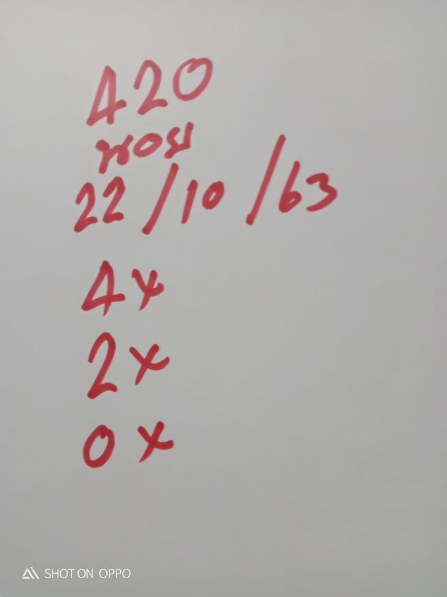 420
22/10/63
4x
2x
0x
SHOT ON OPPO